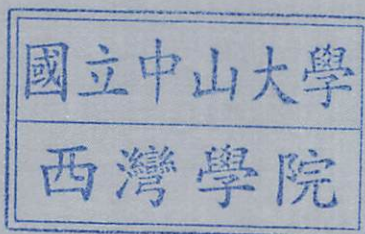 國立中山大學
西灣學院